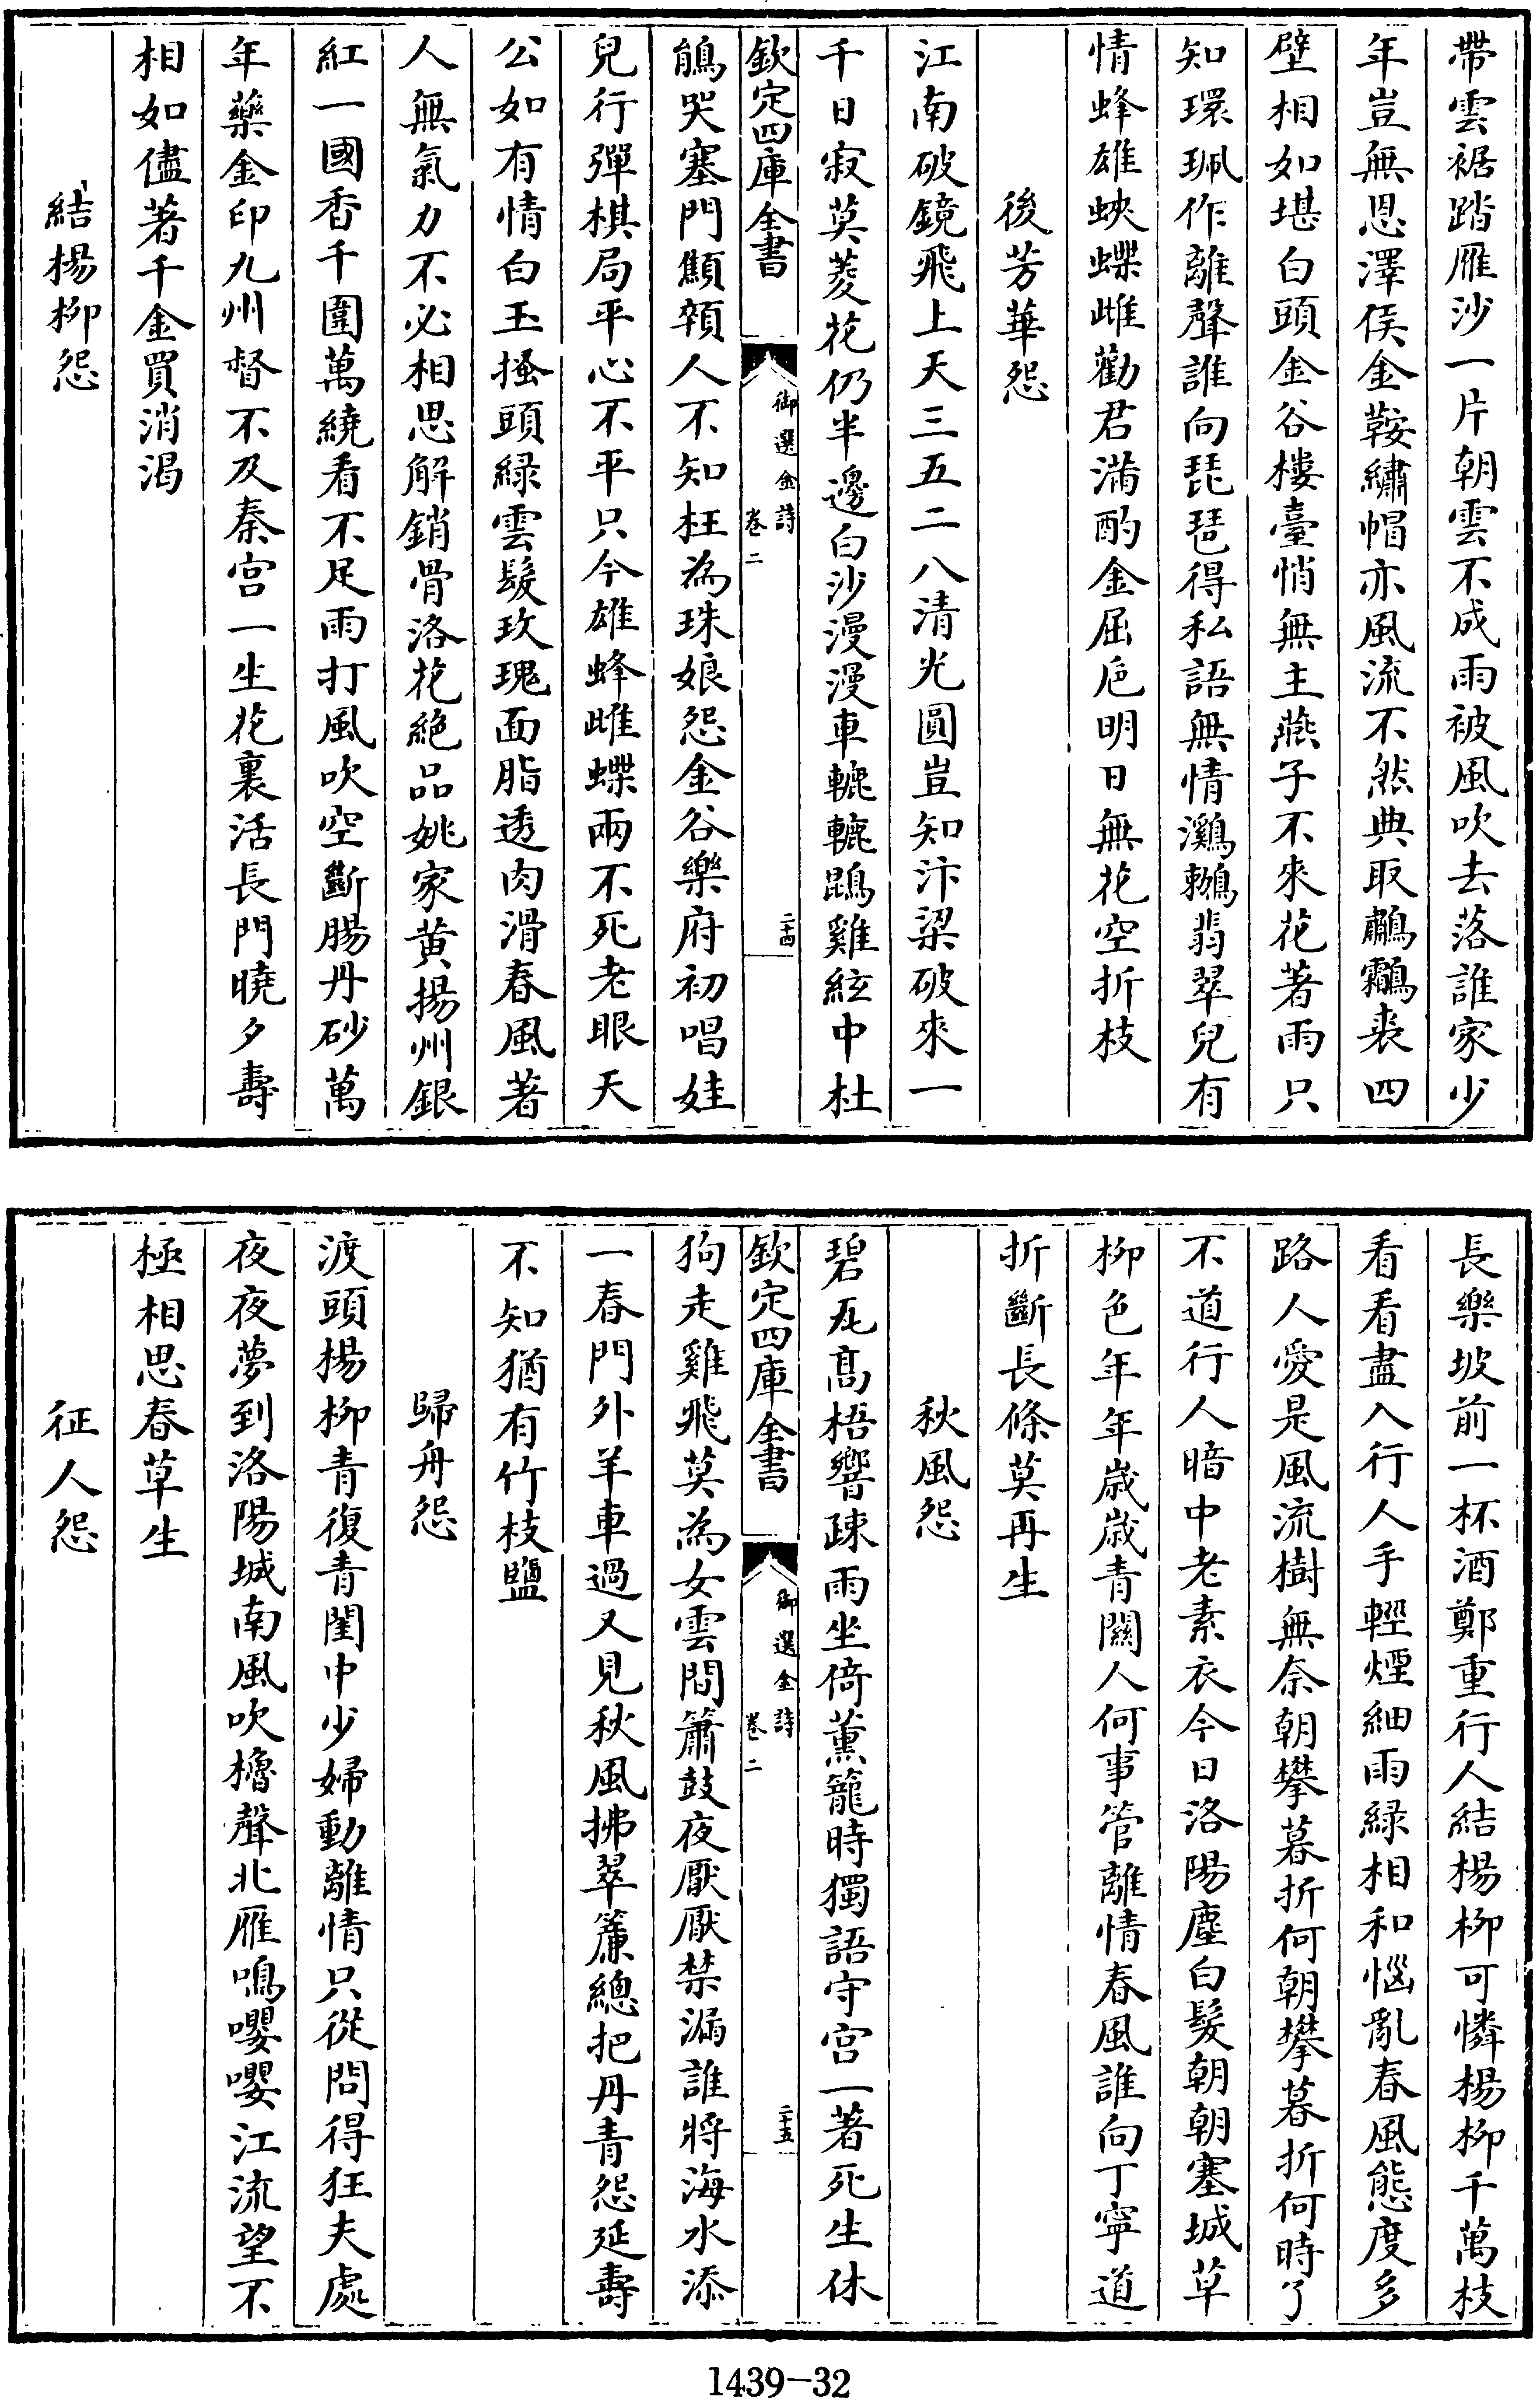 帶雲裾踏雁沙一片朝雲不成雨被風吹去落誰家少
年豈無恩澤侯金鞍繡帽亦風流不然典取鸘裘四
壁相如堪白頭金谷樓臺悄無主燕子不來花著雨只
知環珮作離聲誰向琵琶得私語無情鸂鶒翡翠兒有
情蜂雄蛺蝶雌勸君滿酌金屈卮明日無花空折枝
後芳華怨
江南破鏡飛上天三五二八清光圓豈知汴梁破來一
千日寂莫菱花仍半邊白沙漫漫車轆轆鵾雞絃中杜
欽定四庫全書
御選金詩
卷二
二十四
鵑哭塞門顦顇人不知枉為珠娘怨金谷樂府初唱娃
兒行彈棋局平心不平只今雄蜂雌蝶兩不死老眼天
公如有情白玉搔頭綠雲髮玫瑰面脂透肉滑春風著
人無氣力不必相思解銷骨洛花絶品姚家黄揚州銀
紅一國香千圍萬繞看不足雨打風吹空斷腸丹砂萬
年藥金印九州督不及秦宫一生花裏活長門曉夕壽
相如儘著千金買消渴
結楊柳怨
長樂坡前一杯酒鄭重行人結楊柳可憐楊柳千萬枝
看看盡入行人手輕煙細雨綠相和惱亂春風態度多
路人愛是風流樹無奈朝攀暮折何朝攀暮折何時了
不道行人暗中老素衣今日洛陽塵白髮朝朝塞城草
柳色年年歲歲青關人何事管離情春風誰向丁寧道
折斷長條莫再生
秋風怨
碧瓦高梧響疎雨坐倚薰籠時獨語守宫一著死生休
欽定四庫全書
御選金詩
卷二
二十五
狗走雞飛莫為女雲間簫鼓夜厭厭禁漏誰將海水添
一春門外羊車過又見秋風拂翠簾總把丹青怨延壽
不知猶有竹枝鹽
歸舟怨
渡頭楊柳青復青閨中少婦動離情只從問得狂夫處
夜夜夢到洛陽城南風吹櫓聲北雁鳴嚶嚶江流望不
極相思春草生
征人怨
1439-32